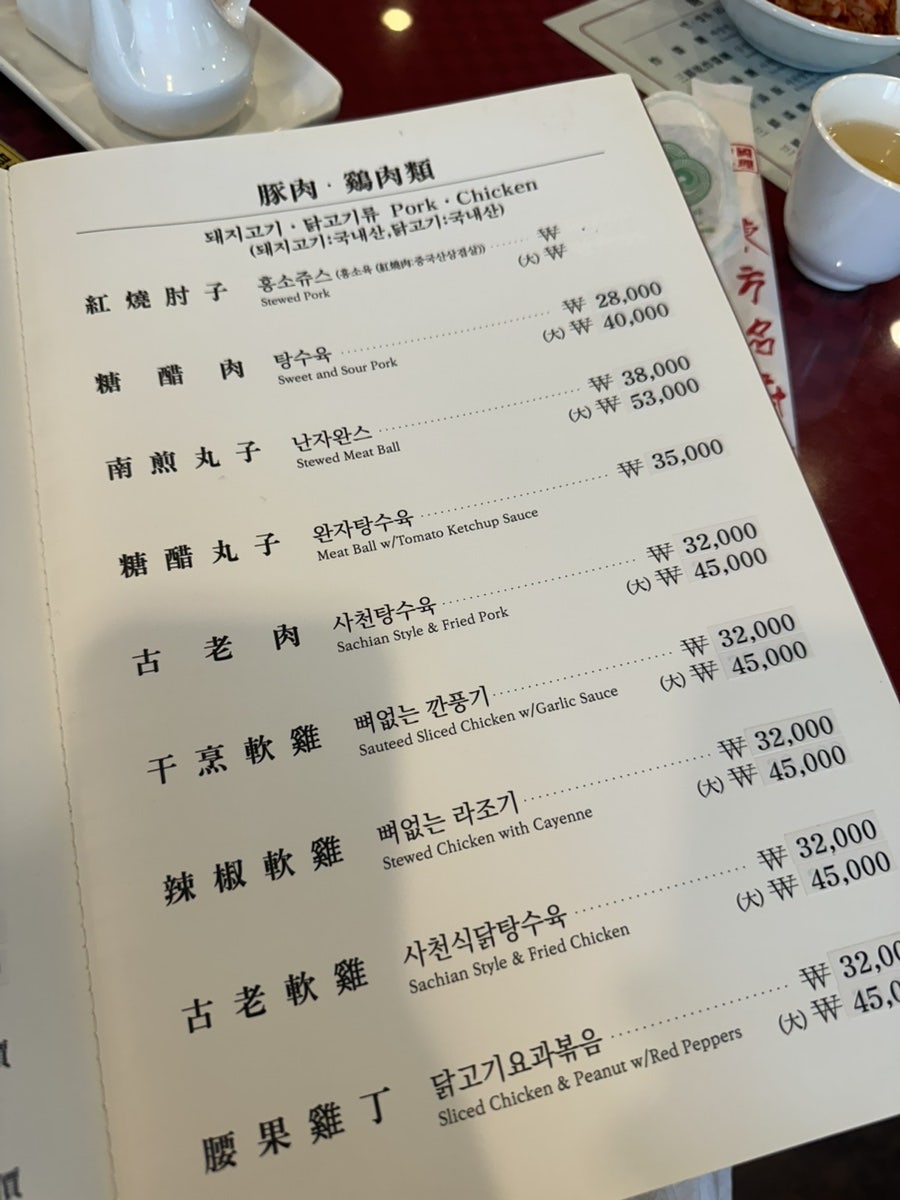 豚肉 · 鷄肉類
돼지고기 · 닭고기류 Pork · Chicken
(돼지고기:국내산,닭고기:국내산)
紅燒肘子 홍소쥬스 (홍소육 (紅燒肉:중국산삼겹살)) ₩
Stewed Pork (大) ₩
糖醋肉 탕수육 ₩ 28,000
Sweet and Sour Pork (大) ₩ 40,000
南煎丸子 난자완스 ₩ 38,000
Stewed Meat Ball (大) ₩ 53,000
糖醋丸子 완자탕수육 ₩ 35,000
Meat Ball w/Tomato Ketchup Sauce
古老肉 사천탕수육 ₩ 32,000
Sachian Style & Fried Pork (大) ₩ 45,000
干烹軟雞 뼈없는 깐풍기 ₩ 32,000
Sauteed Sliced Chicken w/Garlic Sauce (大) ₩ 45,000
辣椒軟雞 뼈없는 라조기 ₩ 32,000
Stewed Chicken with Cayenne (大) ₩ 45,000
古老軟雞 사천식닭탕수육 ₩ 32,000
Sachian Style & Fried Chicken (大) ₩ 45,000
腰果雞丁 닭고기요과볶음 ₩ 32,00
Sliced Chicken & Peanut w/Red Peppers (大) ₩ 45,0
東方名